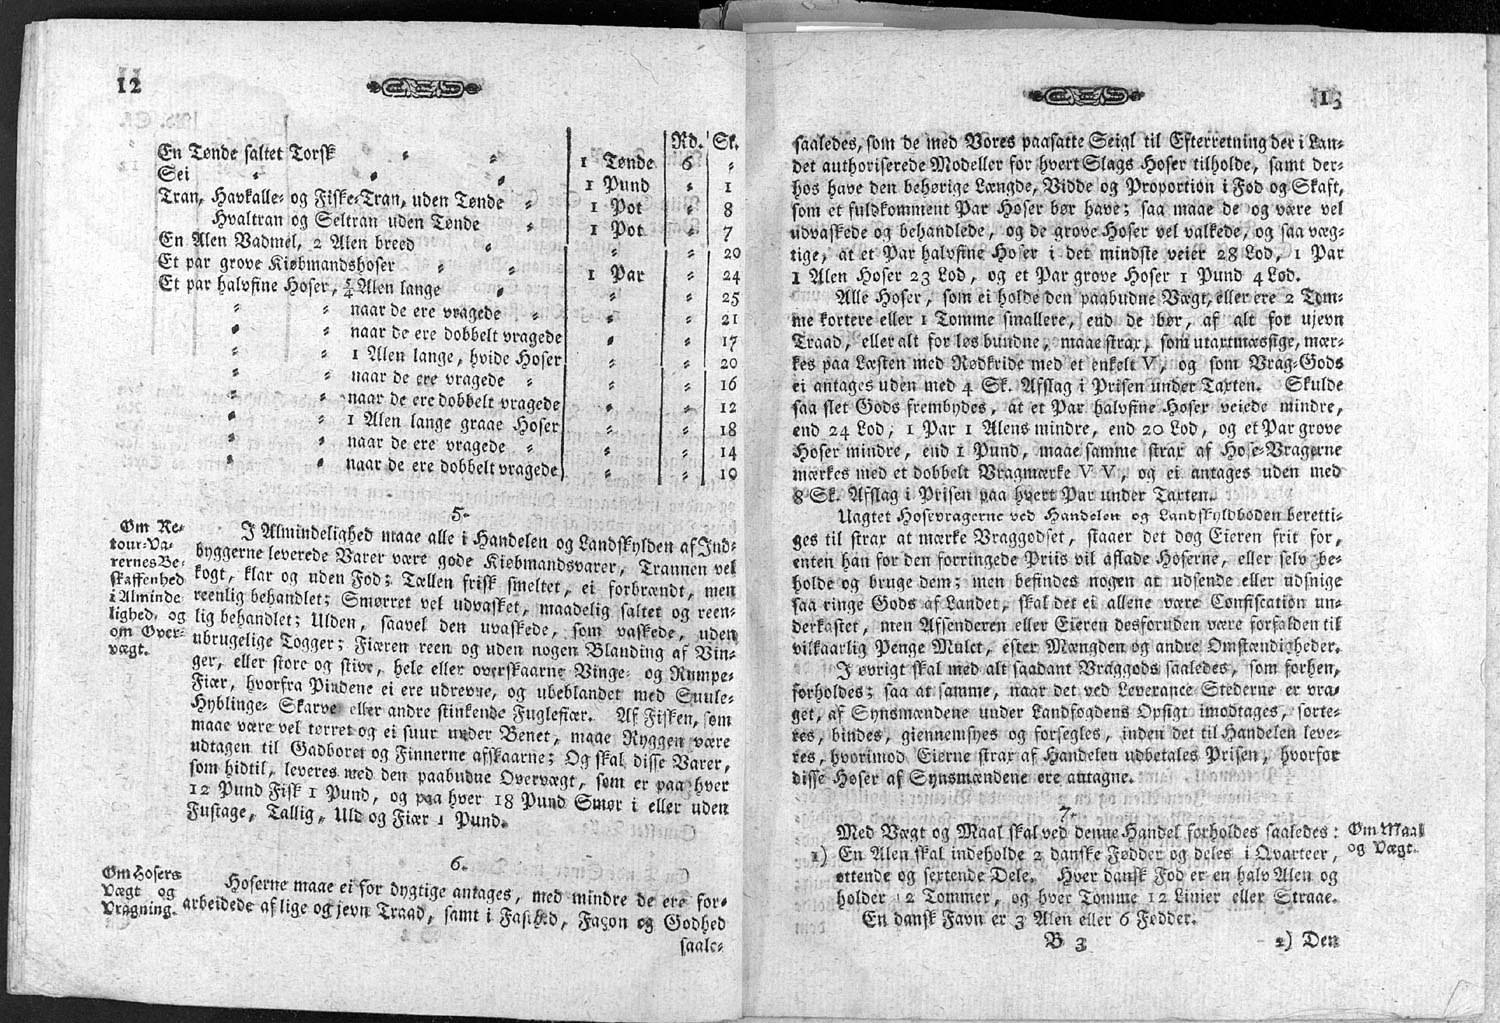 12
Rd. Sk.
En Tønde saltet Torsk 1 Tønde 6 "
Sei " " " 1 Pund " 1
Tran, Havkalle- og Fiske-Tran, uden Tønde " 1 Pot " 8
Hvaltran og Seltran uden Tønde " 1 Pot " 7
En Alen Vadmel, 2 Alen breed " " " 20
Et par grove Kiøbmandshoser " " 1 Par " 24
Et par halvfine Hoser, 5/4 Alen lange " " " 25
" " naar de ere vragede " " " 21
" " naar de ere dobbelt vragede " " 17
" " 1 Alen lange, hvide Hoser " " 20
" " naar de ere vragede " " " 16
" " naar de ere dobbelt vragede " " 12
" " 1 Alen lange graae Hoser " " 18
" " naar de ere vragede " " " 14
" " naar de ere dobbelt vragede " " 10
5.
Om Re-
tour-Va-
rernes Be-
skaffenhed
i Alminde
lighed, og
om Over-
vægt.
I Almindelighed maae alle i Handelen og Landskylden af Ind-
byggerne leverede Varer være gode Kiøbmandsvarer, Trannen vel
kogt, klar og uden Fod; Tællen frisk smeltet, ei forbrændt, men
reenlig behandlet; Smørret vel udvasket, maadelig saltet og reen-
lig behandlet; Ulden, saavel den uvaskede, som vaskede, uden
ubrugelige Togger; Fiæren reen og uden nogen Blanding af Vin-
ger, eller store og stive, hele eller overskaarne Vinge- og Rumpe-
Fiær, hvorfra Pindene ei ere udrevne, og ubeblandet med Suule-
Hyblinge- Skarve eller andre stinkende Fuglefiær. Af Fisken, som
maae være vel tørret og ei suur under Benet, maae Ryggen være
udtagen til Gadboret og Finnerne afskaarne; Og skal disse Varer,
som hidtil, leveres med den paabudne Overvægt, som er paa hver
12 Pund Fisk 1 Pund, og paa hver 18 Pund Smør i eller uden
Fustage, Tallig, Uld og Fiær 1 Pund.
6.
Om Hosers
Vægt og
Vragning.
Hoserne maae ei for dygtige antages, med mindre de ere for-
arbeidede af lige og jevn Traad, samt i Fasthed, Façon og Godhed
saale-
13
saaledes, som de med Vores paasatte Seigl til Efterretning der i Lan-
det authoriserede Modeller for hvert Slags Hoser tilholde, samt der-
hos have den behørige Længde, Vidde og Proportion i Fod og Skaft,
som et fuldkomment Par Hoser bør have; saa maae de og være vel
udvaskede og behandlede, og de grove Hoser vel valkede, og saa væg-
tige, at et Par halvfine Hoser i det mindste veier 28 Lod, 1 Par
1 Alen Hoser 23 Lod, og et Par grove Hoser 1 Pund 4 Lod.
Alle Hoser, som ei holde den paabudne Vægt, eller ere 2 Tom-
me kortere eller 1 Tomme smallere, end de bør, af alt for ujevn
Traad, eller alt for løs bundne, maae strax, som utartmæssige, mær-
kes paa Læsten med Rødkride med et enkelt V, og som Vrag-Gods
ei antages uden med 4 Sk. Afslag i Prisen under Taxten. Skulde
saa slet Gods frembydes, at et Par halvfine Hoser veiede mindre,
end 24 Lod, 1 Par 1 Alens mindre, end 20 Lod, og et Par grove
Hoser mindre, end 1 Pund, maae samme strax af Hose-Vragerne
mærkes med et dobbelt Vragmærke V V, og ei antages uden med
8 Sk. Afslag i Prisen paa hvert Par under Taxten.
Uagtet Hosevragerne ved Handelen og Landskyldboden beretti-
ges til strax at mærke Vraggodset, staaer det dog Eieren frit for,
enten han for den forringede Priis vil aflade Hoserne, eller selv be-
holde og bruge dem; men befindes nogen at udsende eller udsnige
saa ringe Gods af Landet, skal det ei allene være Confiscation un-
derkastet, men Afsenderen eller Eieren desforuden være forfalden til
vilkaarlig Penge Mulct, efter Mængden og andre Omstændigheder.
I øvrigt skal med alt saadant Vraggods saaledes, som forhen,
forholdes; saa at samme, naar det ved Leverance Stederne er vra-
get, af Synsmændene under Landfogdens Opsigt imodtages, sorte-
res, bindes, giennemsyes og forsegles, inden det til Handelen leve-
res, hvorimod Eierne strax af Handelen udbetales Prisen, hvorfor
disse Hoser af Synsmændene ere antagne.
7.
Med Vægt og Maal skal ved denne Handel forholdes saaledes:
Om Maal
og Vægt.
1) En Alen skal indeholde 2 danske Fødder og deles i Qvarteer,
ottende og sextende Dele. Hver dansk Fod er en halv Alen og
holder 12 Tommer, og hver Tomme 12 Linier eller Straae.
En dansk Favn er 3 Alen eller 6 Fødder.
B 3
2) Den